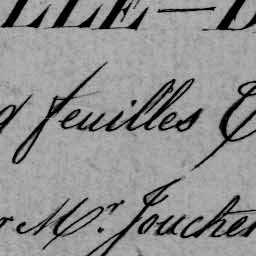 LLE—D
feuilles
r Mr. Jouchen